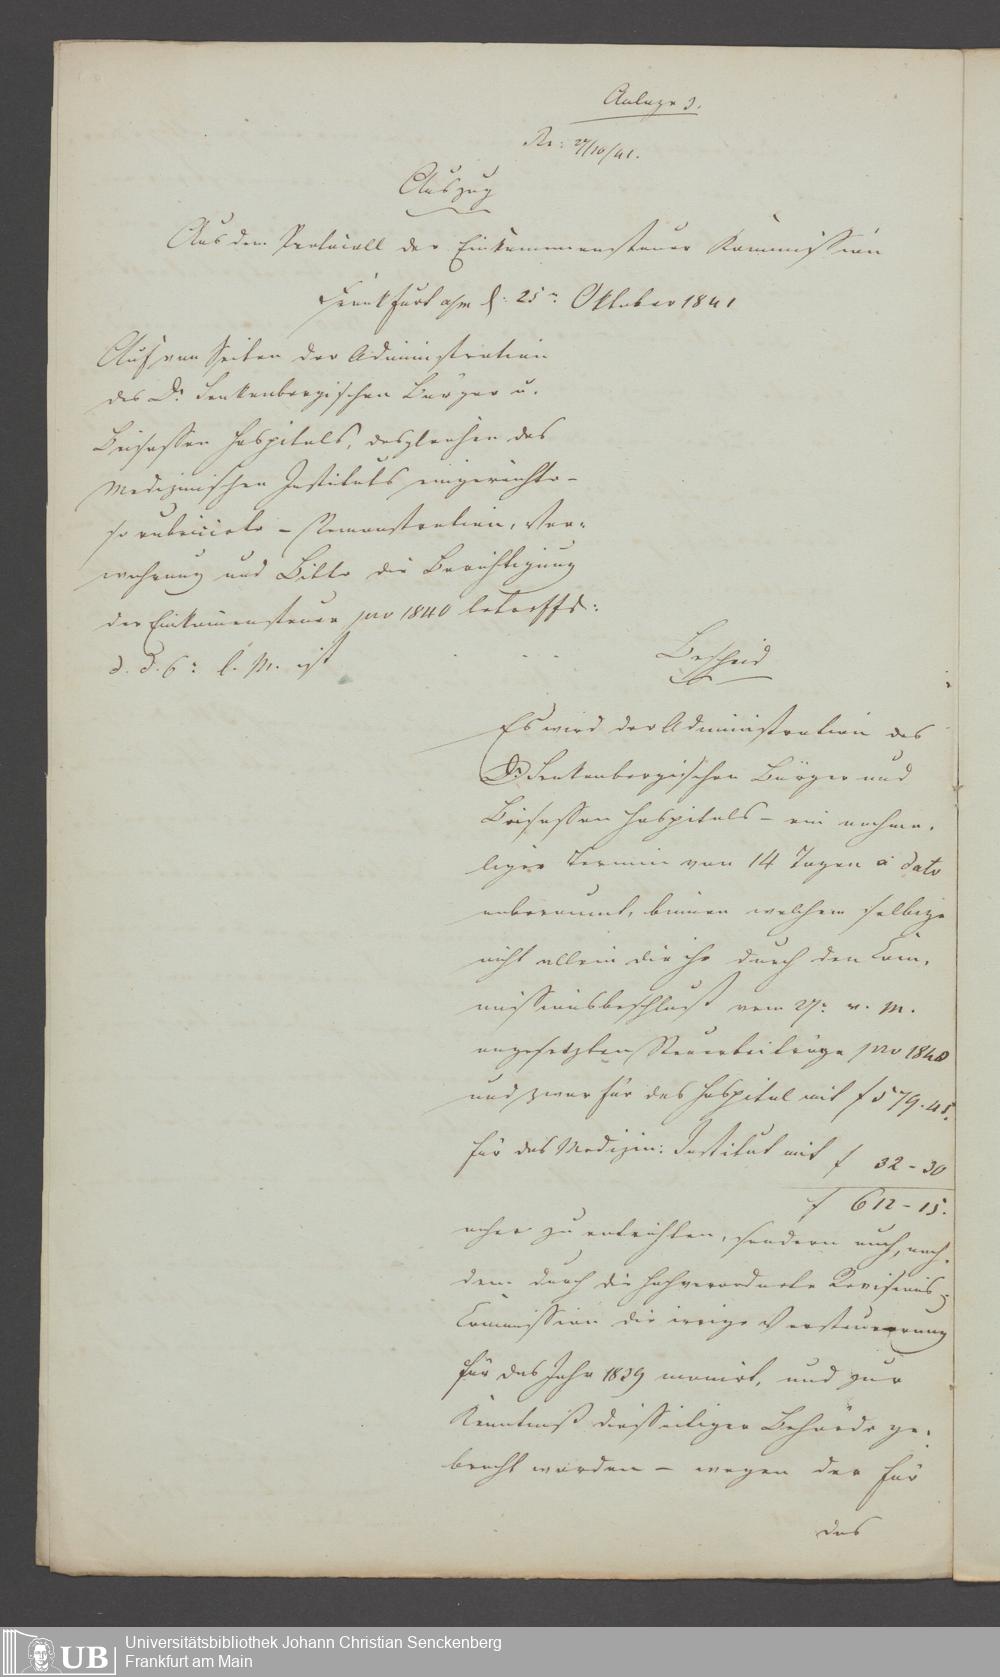 Anlage 3.
Re: 27/10/41.
Auszug
Aus dem Protocoll der Einkommensteuer Kommission
Frankfurt a/m d: 25n Oktober 1841
Auf von Seiten der Administration
des Dr. Senkenbergischen Bürger u.
Beisassen Hospitals, desgleichen des
Medizinischen Instituts eingereichte –
so rubricirte – Remonstration, Ver-
wahrung und Bitte die Berichtigung
der Einkommensteuer pro 1840 betreffd:
d. d. 6: l. M. ist
Bescheid
Es wird der Administration des
Dr Senkenbergischen Bürger und
Beisassen Hospitals – ein nochma-
liger Termin von 14 Tagen a dato
anberaumt, binnen welchem selbige
nicht allein die ihr durch den Com-
missionsbeschluß vom v. M.
angesetzten Steuerbeiträge pro 1840
und zwar für das Hospital mit f 579.45.
für das Medizin: Institut mit f 32–30
f 612–15.
anher zu entrichten, sondern auch, nach-
dem durch die hochverordnete Revisions-
Commission die irrige Versteuerung
für das Jahr 1839 monirt, und zur
Kenntniß diesseitiger Behörde ge-
bracht worden – wegen der für
das
UB
Universitätsbibliothek Johann Christian Senckenberg
Frankfurt am Main